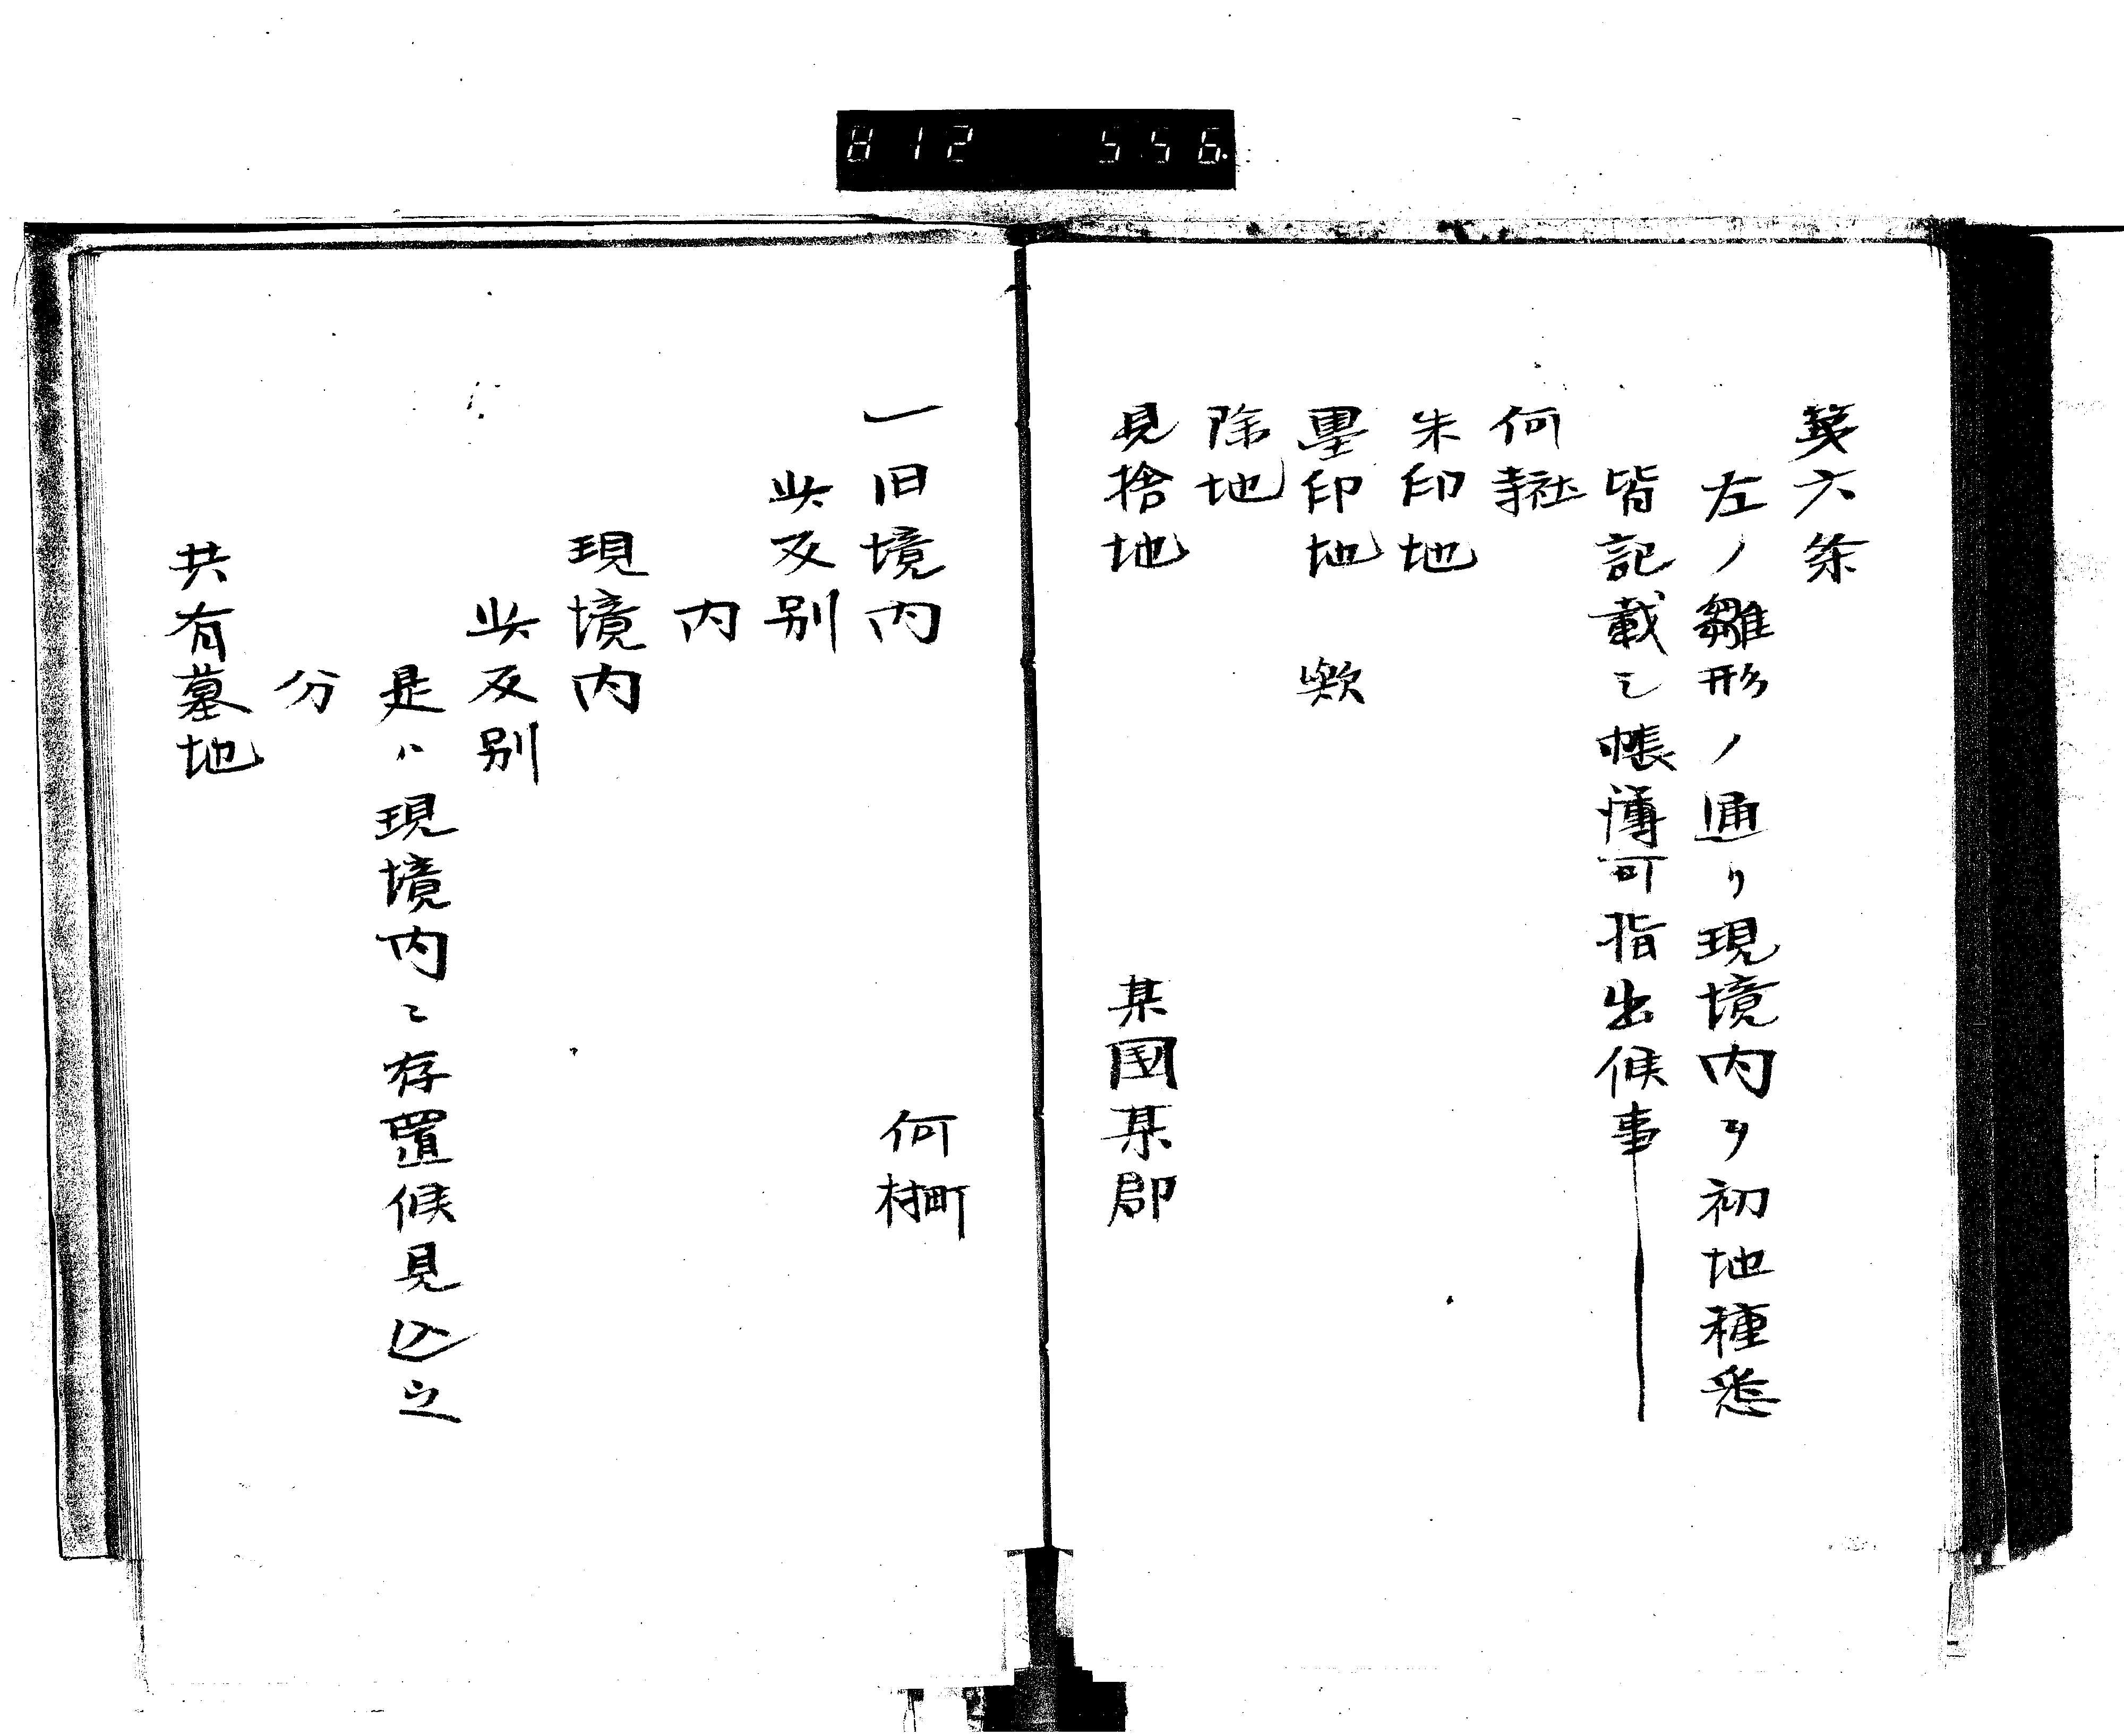 812 556
第六条
左ノ雛形ノ通リ現境内ヲ初地種悉
皆記載シ帳簿可指出候事
何寺社
朱印地
墨印地 歟
除地
見捨地
某國某郡
何村町
一旧境内
此反別
内
現境内
此反別
是ハ現境内ニ存置候見込之
分
共有墓地